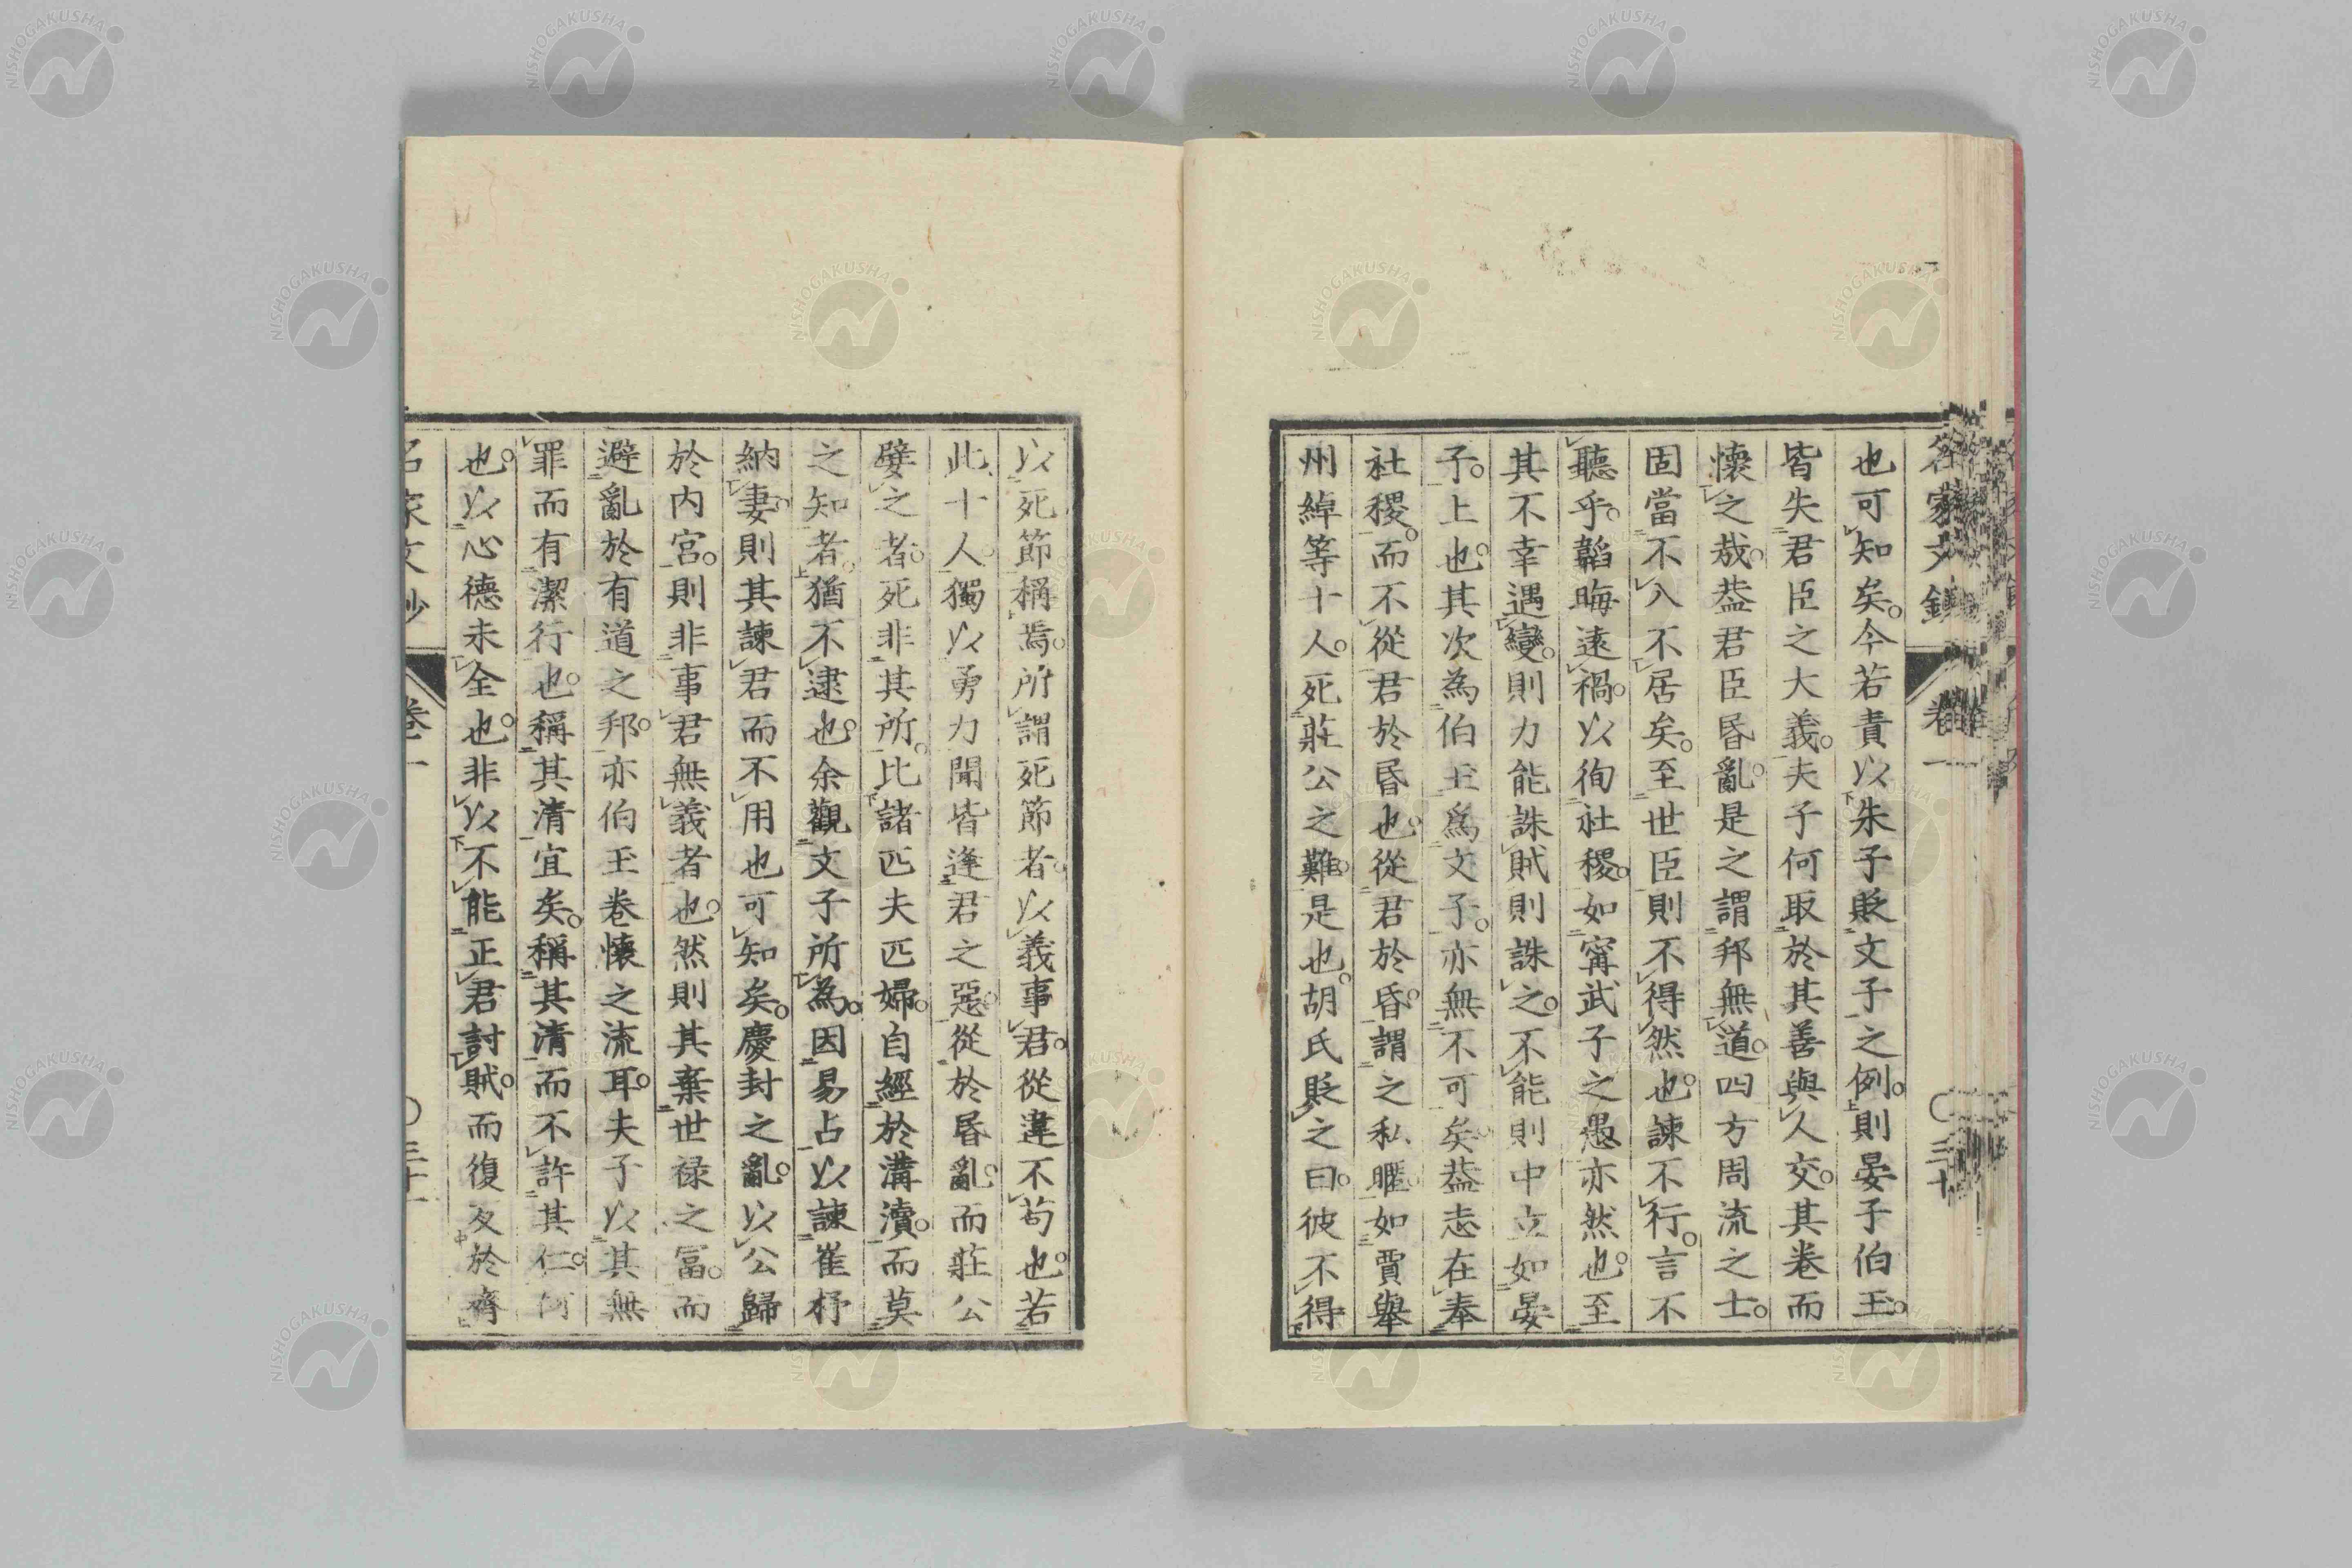 也可知矣。今若責以朱子貶文子之例。則晏子伯玉。
皆失君臣之大義。夫子何取於其善與人交。其卷而
懷之哉。葢君臣昏亂。是之謂邦無道。四方周流之士。
固當不入不居矣。至世臣則不得然也。諫不行。言不
聽乎。韜晦遠禍。以徇社稷。如甯武子之愚亦然也。至
其不幸遇變。則力能誅賊則誅之。不能則中立如晏
子。上也。其次為伯玉爲文子。亦無不可矣。葢志在奉
社稷。而不從君於昏也。從君於昏。謂之私暱。如賈舉
州綽等十人。死莊公之難。是也。胡氏貶之曰。彼不得
以死節稱焉。所謂死節者。以義事君。從違不苟也。若
此十人。獨以勇力聞皆逢君之惡。從於昏亂。而莊公
嬖之者。死非其所。比諸匹夫匹婦。自經於溝瀆。而莫
之知者。猶不逮也。余觀文子所為。因易占以諫崔杼
納妻。則其諫君而不用也可知矣。慶封之亂。以公歸
於內宮。則非事君無義者也。然則其棄世祿之富。而
避亂於有道之邦。亦伯玉卷懷之流耳。夫子以其無
罪而有潔行也。稱其清宜矣。稱其清而不許其仁。何
也。以心德未全也。非以不能正君討賊。而復反於齊
名家文鈔 卷一 〇三十
名家文鈔 卷一 〇三十一
NISHOGAKUSHA